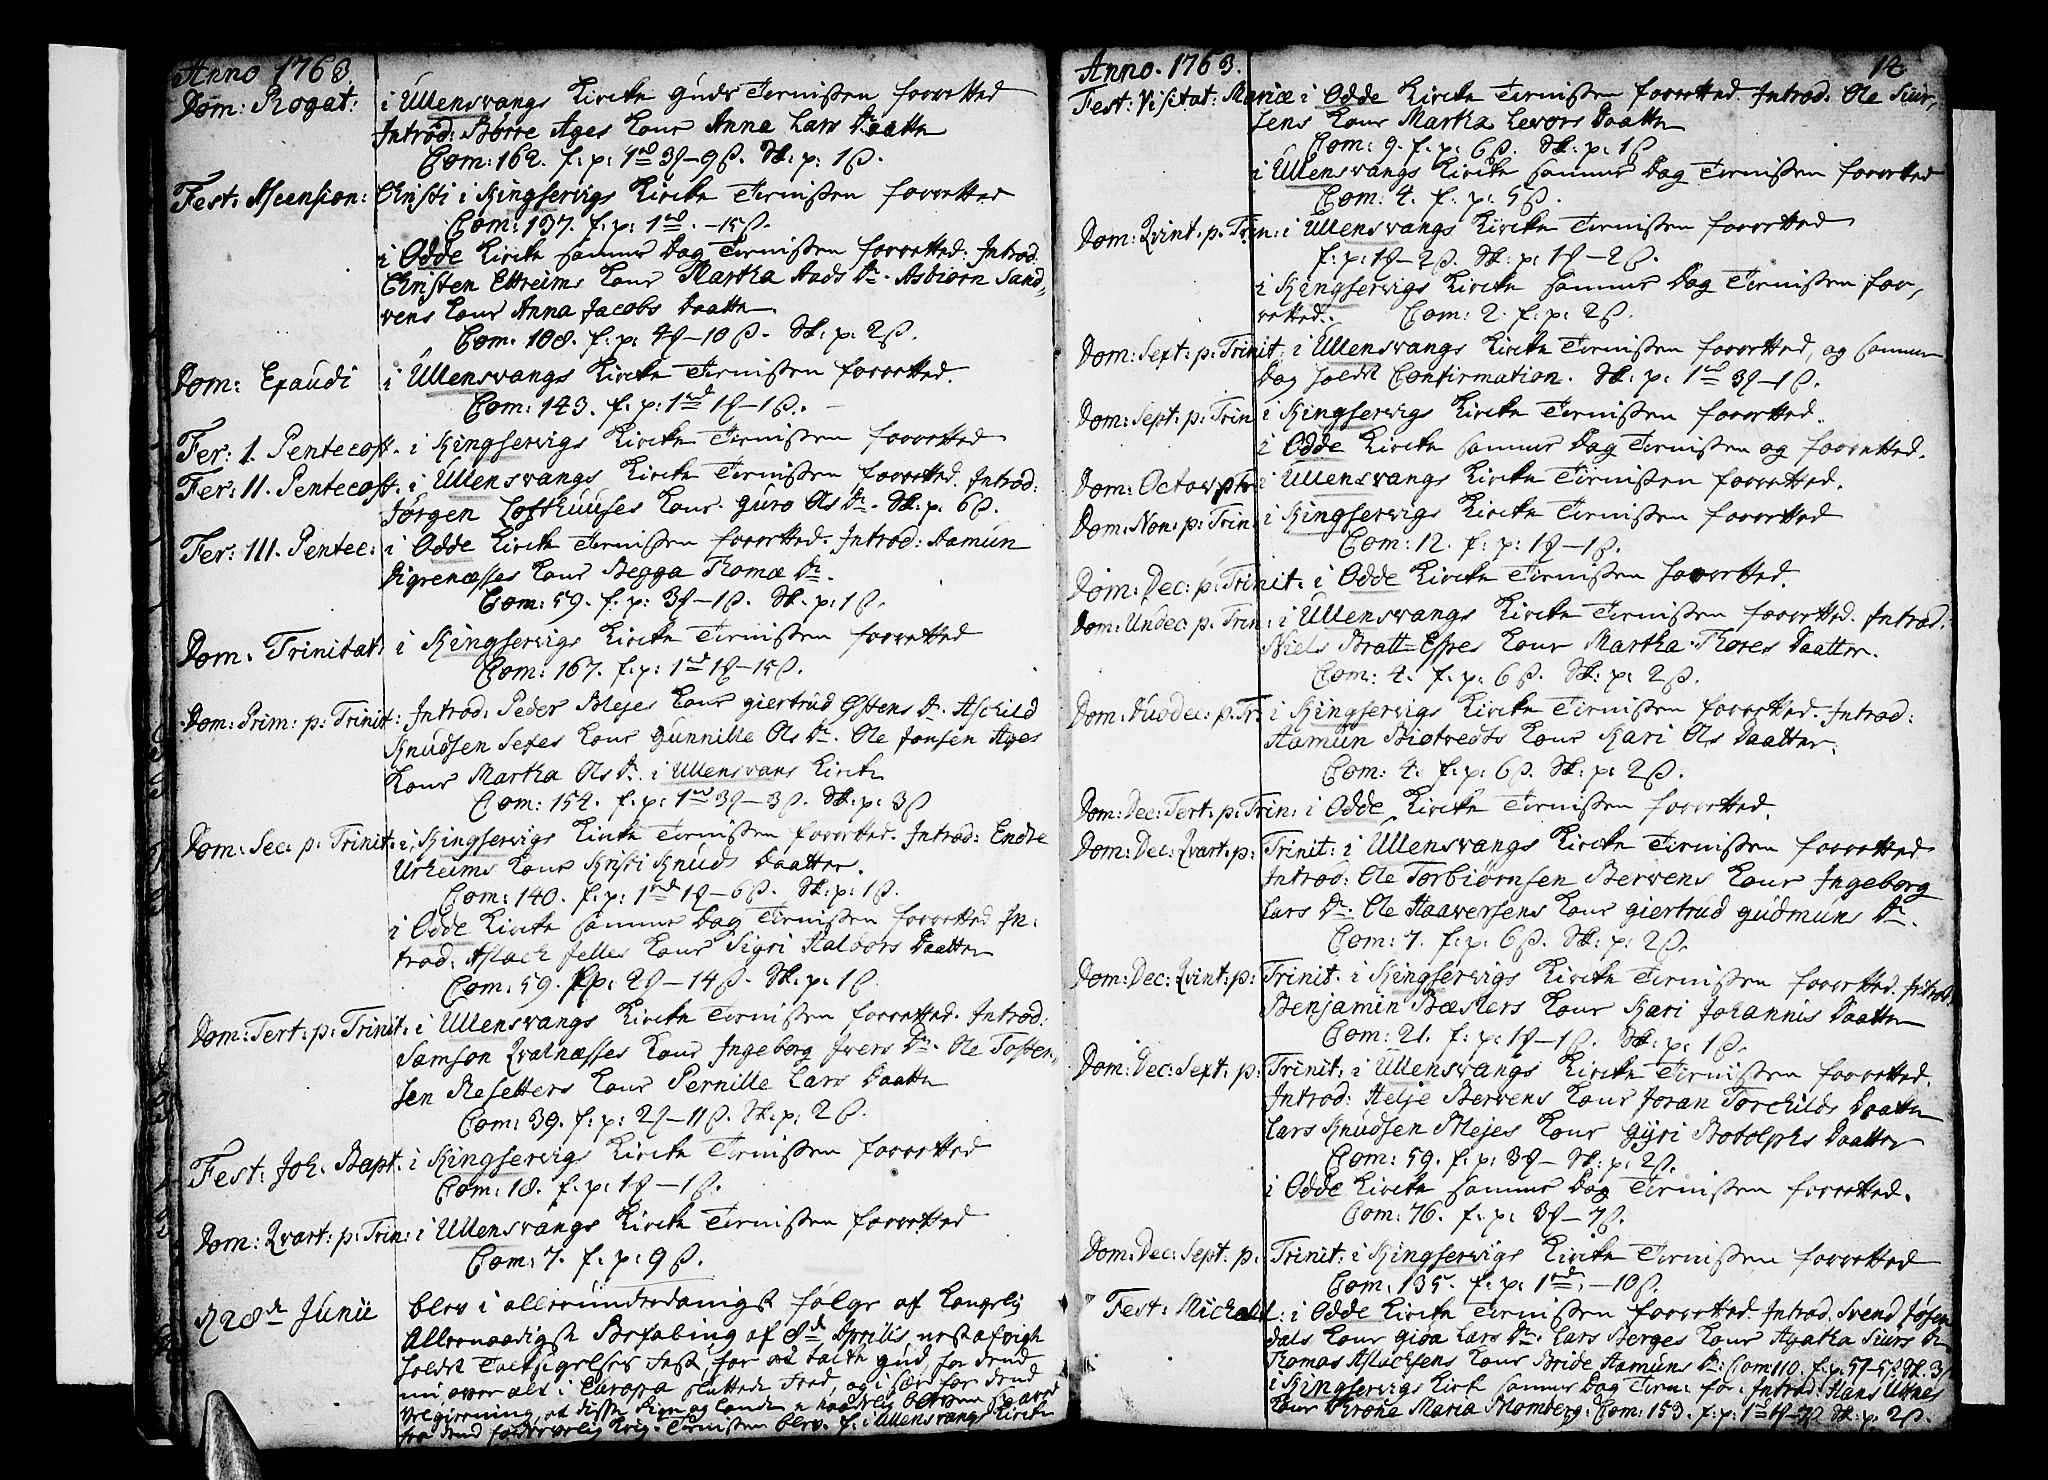 Anno 1763.
Dom: Rogat: i Ullensvangs Kircke Guds Tienisten forretted
Introd: Børre Ages Konr Anna Lars Daatter
Com: 162. f: p: 1rd 3 – 9 β. Sk: p: 1 β.
Fest: Ascension: Christi i Kingservigs Kircke Tienisten forretted
Com: 137. f: p: 1rd – 15 β.
i Odde Kircke samme Dag Tienisten forretted: Introd:
Christen Eitreims Konr Martha Aads Dr. Asbiørn Sand„
vens Konr Anna Jacobs Daatter.
Com. 108. f: p: 4 – 10 β. Sk: p: 2 β.
Dom: Exaudi i Ullensvangs Kircke Tienisten forretted.
Com: 143. f: p: 1rd 1 – 1 β.
Fer: I. Pentecost. i Kingservigs Kircke Tienisten forretted
Fer: II. Pentecost. i Ullensvangs Kircke Tienisten forretted. Introd:
Jørgen Lofthuuses Konr. Guro Ols Dr. Sk: p: 6 β.
Fer: III. Pentec: i Odde Kircke Tienisten forretted. Introd: Aamun
Digrenæsses Konr Begga Thomæ Dr.
Com: 59. f: p: 3 – 1 β. Sk: p: 1 β.
Dom. Trinitat: i Kingservigs Kircke Tienisten forretted
Com: 167. f: p: 1rd 1 – 15 β.
Dom: Prim: p: Trinit: Introd: Peder Blejes Konr giertrud Østens Dr. Aschild
Knudsen Sexes Konr Gunnille Ols Dr. Ole Jonsen Ages
Konr Martha Ols Dr. i Ullensvans Kircke
Com: 154. f: p: 1rd 3 – 3 β. Sk: p: 3 β
Dom: Sec: p: Trinit: i Kingservigs Kircke Tienisten forretted. Introd: Endre
Urheims Konr Kristi Knuds Daatter.
Com: 140. f: p: 1rd 1 – 6 β. Sk: p: 1 β.
i Odde Kircke samme Dag Tienisten forretted In:
trod: Aslack Jelles Konr Sigri Haldors Daatter
Com: 59. p: 2 – 14 β. Sk: p: 1 β.
Dom: Tert: p: Trinit: i Ullensvangs Kircke Tienisten forretted. Introd:
Samson Qvalnæsses Konr Ingeborg Ivers Dr. Ole Tosten„
sen Resetters Konr Pernille Lars Daatter
Com: 39. f: p: 2 – 11 β. Sk: p: 2 β.
Fest: Joh: Bapt: i Kingservigs Kircke Tienisten forretted
Com: 18. f: p: 1 – 1 β.
Dom: Qvart: p: Trin: i Ullensvangs Kircke Tienisten forretted
Com: 7. f: p: 9 β.
28de Junii blev i allerunderdanigst følge af Kongelig
Allernaadigst Befaling af 8de Aprilis nest afvigte
holdt Tacksigelses Fest, for at takke Gud, for dend
nu over alt i Europa sluttede Fred, og i sær for dend
Velgierning, at disse Riger og Lande
fra dend fordervelig Krig. Tienisten blev f. i Ullensvangs Kircke
Anno. 1763. 14
Fest: Visitat: Mariæ i Odde Kircke Tienisten forretted. Introd. Ole Siur„
sens Konr Martha Levors Daatter
Com: 9. f: p: 6 β. Sk: p: 1 β
i Ullensvangs Kircke samme Dag Tienisten forretted
Com: 4. f: p: 5 β.
Dom: Qvint. p. Trin: i Ullensvangs Kircke Tienisten forretted
f: p: 1 – 2 β. Sk: p: 1 – 2 β.
i Kingservigs Kircke samme Dag Tienisten for„
retted. Com: 2. f: p: 2 β.
Dom: Sext: p: Trinit: i Ullensvangs Kircke Tienisten forretted, og samme
Dag holdt Confirmation. Sk: p: 1rd 3 – 1 β.
Dom: Sept: p: Trin i Kingservigs Kircke Tienisten forretted.
i Odde Kircke samme Dag Tienisten og forretted.
Dom: Octav p Tr i Ullensvangs Kircke Tienisten forretted.
Dom: Non: p: Trin: i Kingservigs Kircke Tienisten forretted
Com: 12. f: p: 1 – 1 β.
Dom: Dec: p: Trinit: i Odde Kircke Tienisten forretted.
Dom: Undec: p: Trin: i Ullensvangs Kircke Tienisten forretted. Introd:
Niels Bratt-Espes Konr Martha Thores Daatter.
Com: 4. f: p: 6 β. Sk: p: 2 β.
Dom: Duodec: p: Tr: i Kingservigs Kircke Tienisten forretted. Introd:
Aamun Biotvedts Konr Kari Ols Daatter.
Com: 4. f: p: 6 β. Sk: p: 2 β.
Dom: Dec: Tert: p: Trin: i Odde Kircke Tienisten forretted.
Dom: Dec: Qvart: p: Trinit: i Ullensvangs Kircke Tienisten forretted
Introd: Ole Torbiørnsen Bervens Konr Ingeborg
Lars Dr. Ole Haaversens Konr giertrud gudmuns Dr.
Com: 7. f: p: 6 β. Sk: p: 2 β.
Dom: Dec: Qvint: p: Trinit: i Kingservigs Kircke Tienisten forretted. Introd:
Benjamin Bæsters Konr Kari Johannis Daatter
Com: 21. f: p: 1 – 1 β. Sk: p: 1 β.
Dom: Dec: Sext: p: Trinit: i Ullensvangs Kircke Tienisten forretted.
Introd: Helje Bervens Konr Joran Torchilds Daatter
Lars Knudsen Blejes Konr Gyri Botolphs Daatter
Com: 59. f: p: 3 – Sk: p: 2 β.
i Odde Kircke samme Dag Tienisten forretted.
Com: 76. f: p: 3 – 7 β.
Dom: Dec: Sept: p: Trinit: i Kingservigs Kircke Tienisten forretted
Com: 135. f: p: 1rd. – 10 β.
Fest: Michael: i Odde Kircke Tienisten forretted. Introd. Svend Jøsen
dals Konr Gida Lars Dr. Lars Berges Konr Agatha Siurs Dr
Thomas Aslachsens Konr Bride Aamuns Dr: Com: 110. f: p: 5 – 5 β. Sk. 3
i Kingservigs Kirk samme Dag Tien: for: Introd: Hans Utnes
Konr Throne Maria Blomberg: Com: 153. f: p: 1rd Sk: p: 2 β.